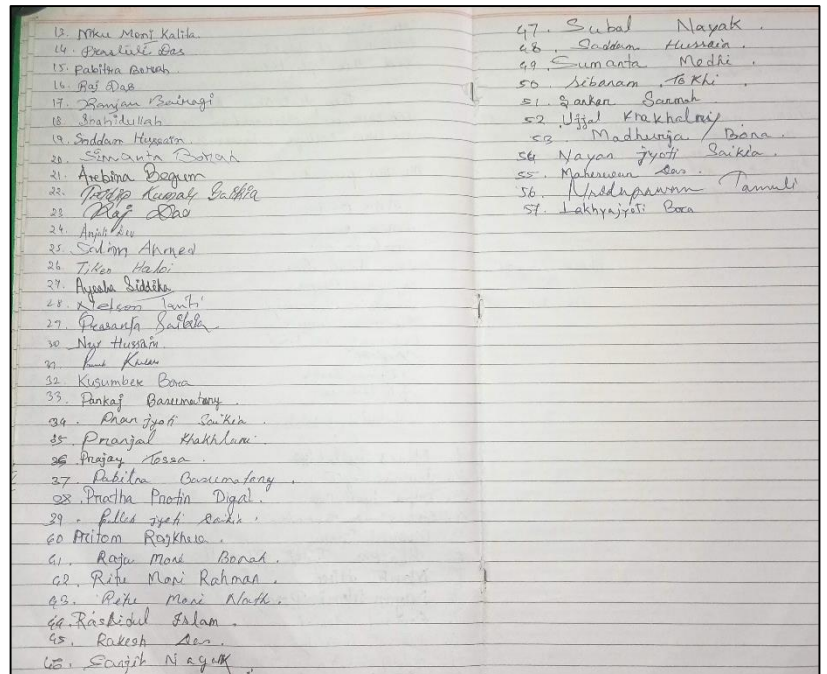 13. Niku Moni Kalita.
14. Das
15. Pabitra Borah.
16. Raj Das
17. Ranjan Bairagi
18. Shahidullah
19. Saddam Hussain.
20. Simanta Borah
21. Arebina Begum
22. Tridip Kumar Saikia
23 Raj Das
24. Anjali Das
25. Salim Ahmed
26. Tiken Haloi
27. Ayesha Siddika
28. Nelson Tanti
29. Prasanta Saikia
30 Nur Hussain.
31.
32. Kusumber Bora
33. Pankaj Basumatary.
34. Dhanjyoti Saikia.
35 Pranjal Khakhlari.
36 Prajay Tossa.
37. Pabitra Basumatary.
38. Pratha Protin Digal.
39. jyoti Saikia.
40 Pritom Rajkhowa.
41. Raju Moni Borah.
42. Ritu Moni Rahman.
43. Ritu Moni Nath.
44. Rashidul Islam.
45. Rakesh Das.
46. Sanjit Nayak
47. Subal Nayak.
48. Saddam Hussain.
49. Sumanta Medhi.
50. Sibanam Tokhi
51. Sankar Sarmah
52. Ujjal Krakhalari
53. Madhurjya Bora
54. Nayan jyoti Saikia.
55. Das.
56. Tamuli
57. Lakhyajyoti Bora